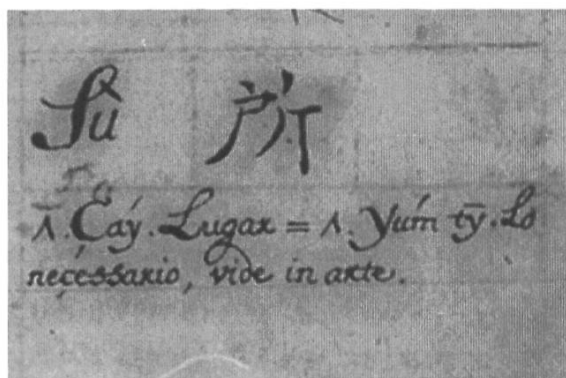 Sù 所
ʌ̄. Çaý. Lugar = ʌ. Yúm tȳ. Lo
neçessario, vide in arte.